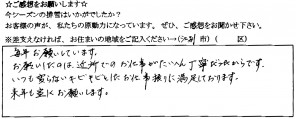 ☆ご感想をお願いします☆
今シーズンの排雪はいかがでしたか?
お客様の声が、私たちの原動力になっています。ぜひ、ご感想をお聞かせ下さい。
※差支えなければ、お住まいの地域をご記入ください→( 市)( 区)
毎年お願いしています。
お願いしたのは、近所でのお仕事がたいへん丁寧だったからです。
いつも変らないキビキビとしたお仕事振りに満足しております。
来年も宜しくお願いします。